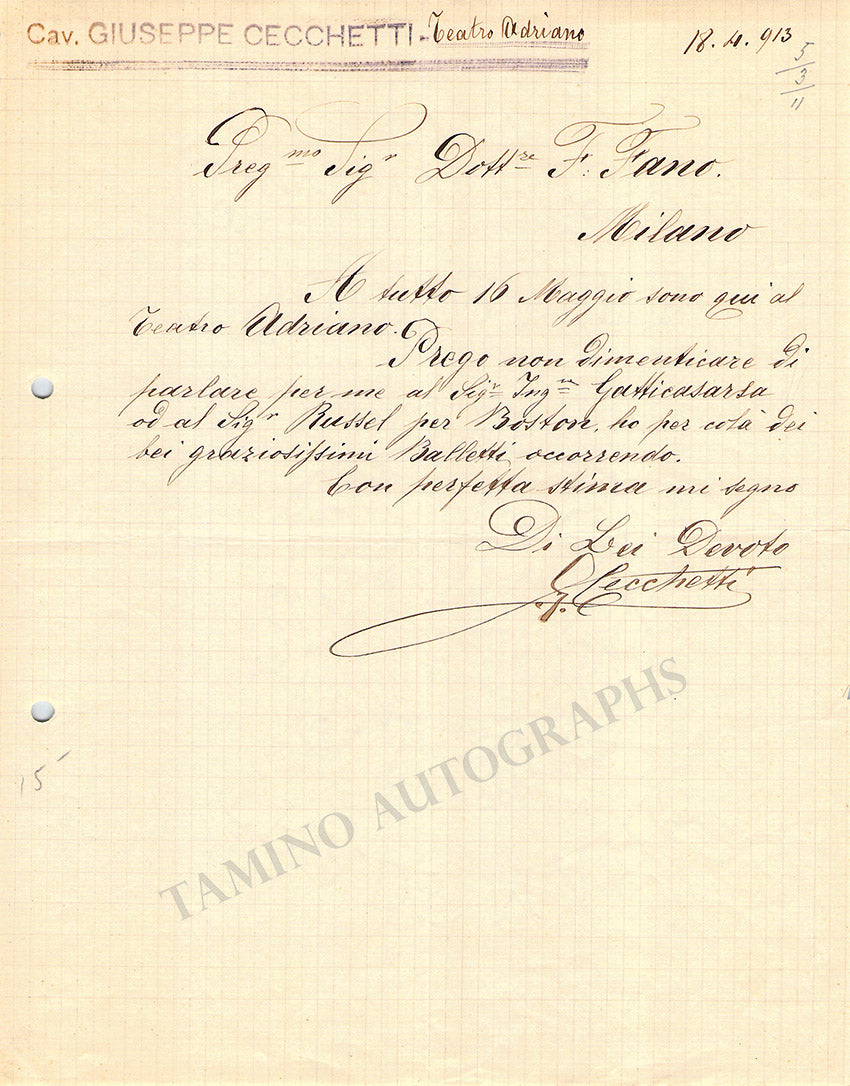 Cav. GIUSEPPE CECCHETTI - Teatro Adriano
18. 4. 913
5/3/11
Preg.mo Sigr Dottre F. Fano.
Milano
A tutto 16 Maggio sono qui al
Teatro Adriano.
Prego non dimenticare di
parlare per me al Sigr Ingre Gatticasarsa
od al Sigr Russel per Boston, ho per colà dei
bei graziosissimi Balletti, occorrendo.
Con perfetta stima mi segno
Di Lei Devoto
G. Cecchetti
15
TAMINO AUTOGRAPHS